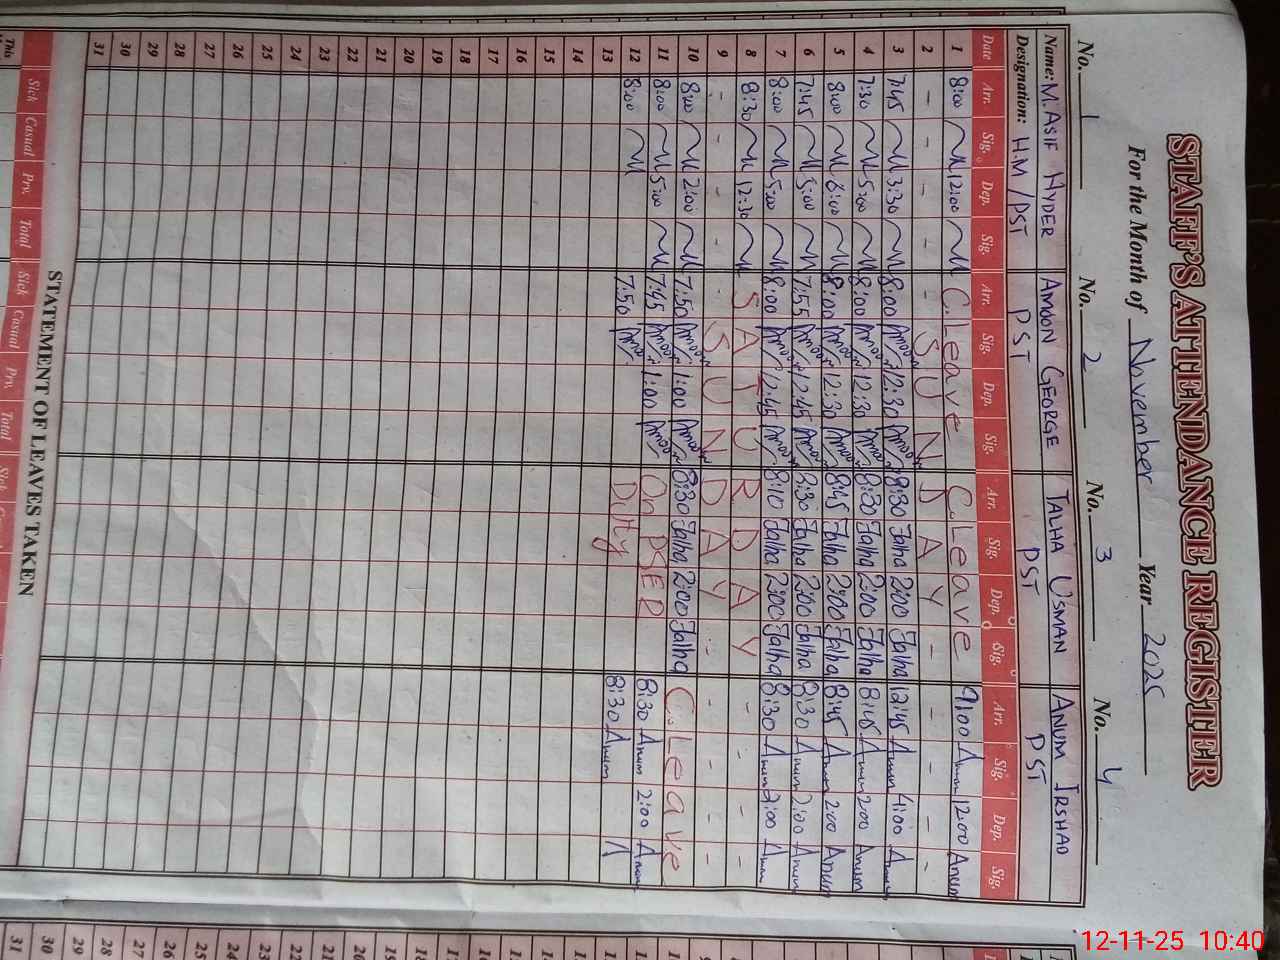 STAFF'S ATTENDANCE REGISTER
For the Month of November Year 2025
No. 1 No. 2 No. 3 No. 4
Name: M. ASIF HYDER AMOON GEORGE TALHA USMAN ANUM IRSHAD
Designation: H.M/PST PST PST PST
Date Arr. Sig. Dep. Sig. Arr. Sig. Dep. Sig. Arr. Sig. Dep. Sig. Arr. Sig. Dep. Sig.
1 8:00 12:00 C.Leave C.Leave 9:00 Anum 12:00 Anum
2 - - - - - SUNDAY - - - - -
3 7:45 3:30 8:00 Amoon 12:30 Amoon 8:30 Talha 2:00 Talha 12:45 Anum 4:00 Anum
4 7:30 5:00 8:00 Amoon 12:30 Amoon 8:30 Talha 2:00 Talha 8:45 Anum 2:00 Anum
5 8:00 6:00 8:00 Amoon 12:30 Amoon 8:45 Talha 2:00 Talha 8:45 Anum 2:00 Anum
6 7:45 5:00 7:55 Amoon 12:45 Amoon 8:30 Talha 2:00 Talha 8:30 Anum 2:00 Anum
7 8:00 5:00 8:00 Amoon 12:45 Amoon 8:10 Talha 2:00 Talha 8:30 Anum 2:00 Anum
8 8:30 12:30 SATURDAY - - - -
9 - - - - - SUNDAY - - - -
10 8:00 2:00 7:50 Amoon 1:00 Amoon 8:30 Talha 2:00 Talha C.Leave
11 8:00 5:00 7:45 Amoon 1:00 Amoon On PSER 8:30 Anum 2:00 Anum
12 8:00 7:50 Amoon Duty 8:30 Anum A
13
14
15
16
17
18
19
20
21
22
23
24
25
26
27
28
29
30
31
STATEMENT OF LEAVES TAKEN
Sick Casual Prv. Total Sick Casual Prv. Total Sick
This
31
30
29
28
27
26
25
24
23
22
21
20
12-11-25 10:40